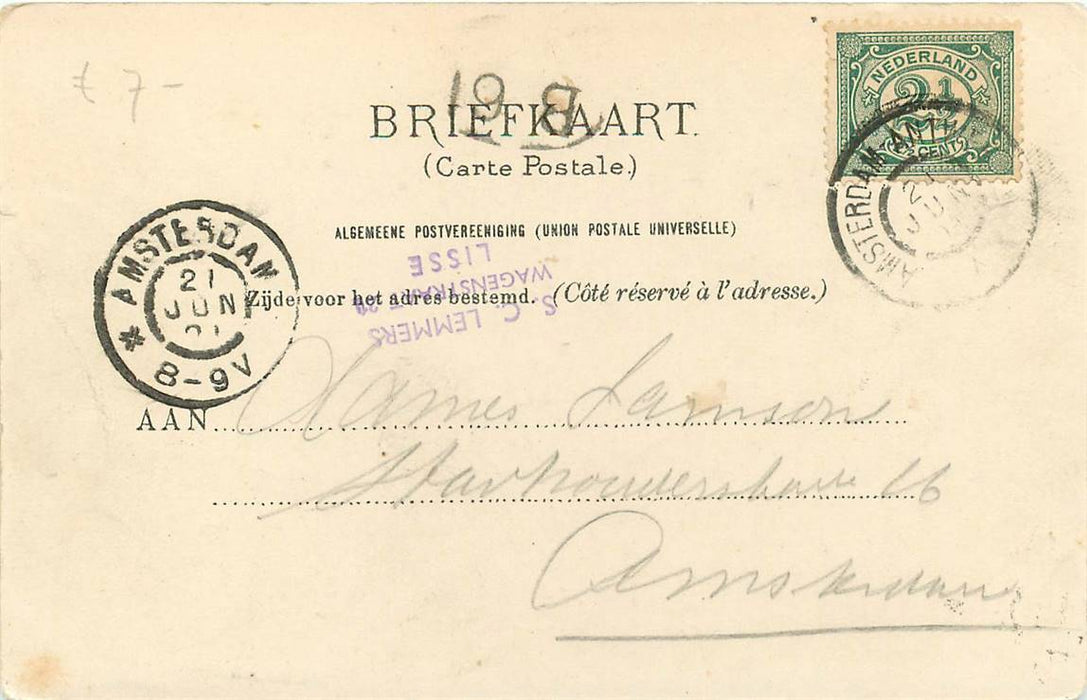 £ 7-
19 B
BRIEFKAART.
(Carte Postale.)
NEDERLAND
2½
CENT
AMSTERDAM
21
JUN
ALGEMEENE POSTVEREENIGING (UNION POSTALE UNIVERSELLE)
AMSTERDAM
21 JUN
8-9V
S. C. LEMMERS
WAGENSTRAAT
LISSE
Zijde voor het adres bestemd. (Côté réservé à l'adresse.)
AAN
16
Amsterdam